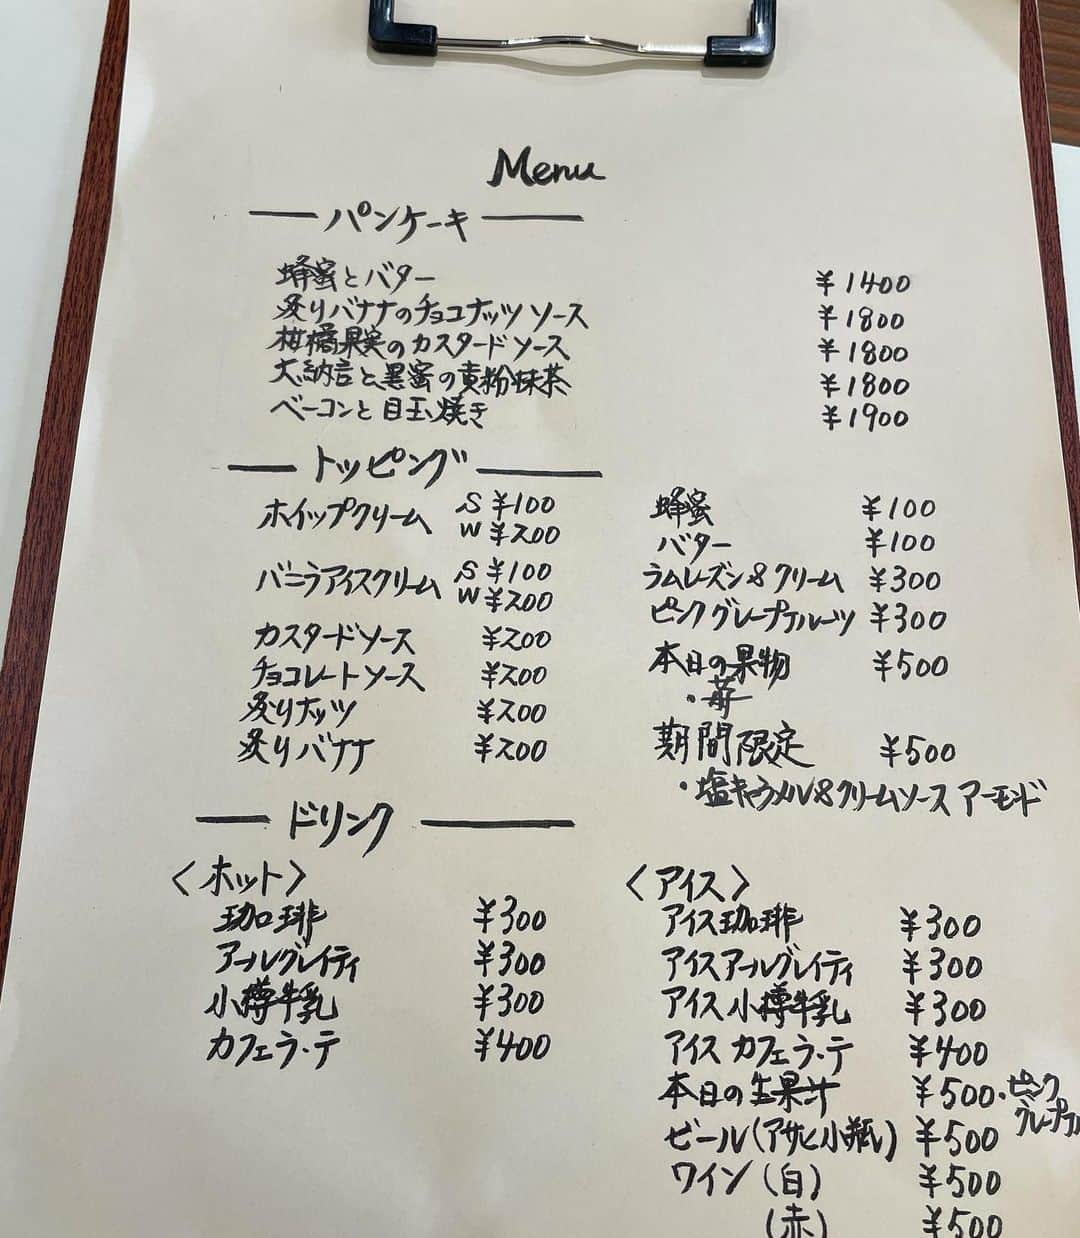 Menu
パンケーキ
蜂蜜とバター ¥1400
炙りバナナのチョコナッツソース ¥1800
柑橘果実のカスタードソース ¥1800
大納言と黒蜜の黄粉抹茶 ¥1800
ベーコンと目玉焼き ¥1900
トッピング
ホイップクリーム S ¥100
W ¥200
バニラアイスクリーム S ¥100
W ¥200
カスタードソース ¥200
チョコレートソース ¥200
炙りナッツ ¥200
炙りバナナ ¥200
蜂蜜 ¥100
バター ¥100
ラムレーズン&クリーム ¥300
ピンクグレープフルーツ ¥300
本日の果物 ¥500
・苺
期間限定 ¥500
・塩キャラメル&クリームソース アーモンド
ドリンク
〈ホット〉
珈琲 ¥300
アールグレイティ ¥300
小樽牛乳 ¥300
カフェラ・テ ¥400
〈アイス〉
アイス珈琲 ¥300
アイスアールグレイティ ¥300
アイス小樽牛乳 ¥300
アイスカフェラ・テ ¥400
本日の生果汁 ¥500・ピンク
グレープフル
ビール(アサヒ小瓶) ¥500
ワイン(白) ¥500
(赤) ¥500